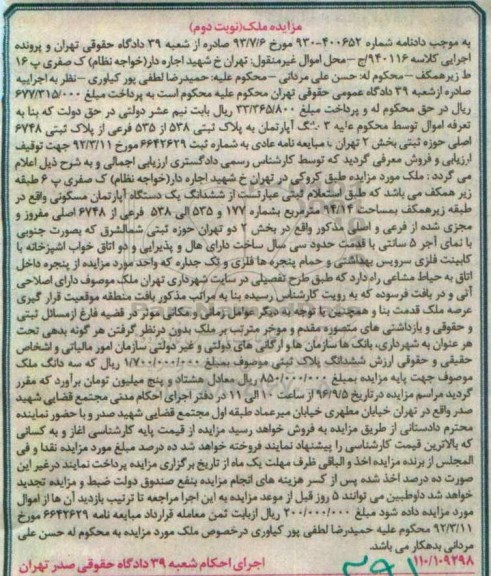 مزایده ملک(نوبت دوم)
به موجب دادنامه شماره ۴۰۰۶۵۲-۹۳۰ مورخ ۹۳/۷/۶ صادره از شعبه ۳۹ دادگاه حقوقی تهران و پرونده
اجرایی کلاسه ۹۴۰۱۱۶/ج - محل اموال غیرمنقول: تهران خ شهید اجاره دار(خواجه نظام) ک صفری پ ۱۶
ط زیرهمکف - محکوم له: حسن علی مردانی - محکوم علیه: حمیدرضا لطفی پور کیاوری - نظر به اجراییه
صادره ازشعبه ۳۹ دادگاه عمومی حقوقی تهران محکوم علیه محکوم است به پرداخت مبلغ ۶۷۷/۳۱۵/۰۰۰
ریال در حق محکوم له و پرداخت مبلغ ۳۳/۳۶۵/۸۰۰ ریال بابت نیم عشر دولتی در حق دولت که بنا به
تعرفه اموال توسط محکوم علیه ۳ دانگ آپارتمان به پلاک ثبتی ۵۳۸ از ۵۳۵ فرعی از پلاک ثبتی ۶۷۴۸
اصلی حوزه ثبتی بخش ۲ تهران با مبایعه نامه عادی به شماره ثبت ۶۶۴۲۶۲۹ مورخ ۹۲/۳/۱۱ جهت توقیف
ارزیابی و فروش معرفی گردید که توسط کارشناس رسمی دادگستری ارزیابی اجمالی و به شرح ذیل اعلام
می گردد : ملک مورد مزایده طبق کروکی در تهران خ شهید اجاره دار(خواجه نظام) ک صفری پ ۶ طبقه
زیر همکف می باشد که طبق استعلام ثبتی عبارتست از ششدانگ یک دستگاه آپارتمان مسکونی واقع در
طبقه زیرهمکف بمساحت ۹۴/۱۴ مترمربع بشماره ۱۷۷ و ۵۳۵ الی ۵۳۸ فرعی از ۶۷۴۸ اصلی مفروز و
مجزی شده از فرعی و اصلی مذکور واقع در بخش ۲ دو تهران حوزه ثبتی شمالشرق که بصورت جنوبی
با نمای آجر ۵ سانتی با قدمت حدود سی سال ساخت دارای هال و پذیرایی و دو اتاق خواب اشپزخانه با
کابینت فلزی سرویس بهداشتی و حمام پنجره ها فلزی و تک جداره که واحد مورد مزایده از پنجره داخل
اتاق به حیاط مشاعی راه دارد که طبق طرح تفصیلی در سایت شهرداری تهران ملک موصوف دارای اصلاحی
آتی و در بافت فرسوده که به رویت کارشناس رسیده بنا به مراتب مذکور بافت منطقه موقعیت قرار گیری
عرصه ملک قدمت بنا و همچنین با توجه به دیگر عوامل زمانی و مکانی موثر در قضیه فارغ ازمسائل ثبتی
و حقوقی و بازداشتی های متصوره مقدم و موخر مترتب بر ملک بدون درنظر گرفتن هر گونه بدهی تحت
هر عنوان به شهرداری، بانک ها سازمان ها و ارگانی های دولتی و غیر دولتی سازمان امور مالیاتی و اشخاص
حقیقی و حقوقی ارزش ششدانگ پلاک ثبتی موصوف بمبلغ ۱/۷۰۰/۰۰۰/۰۰۰ ریال که سه دانگ ملک
موصوف جهت پایه مزایده بمبلغ ۸۵۰/۰۰۰/۰۰۰ ریال معادل هشتاد و پنج میلیون تومان برآورد که مقرر
گردید مراسم مزایده در تاریخ ۹۶/۹/۵ از ساعت ۱۰ الی ۱۱ در دفتر اجرای احکام مدنی مجتمع قضایی شهید
صدر واقع در تهران خیابان مطهری خیابان میرعماد طبقه اول مجتمع قضایی شهید صدر و با حضور نماینده
محترم دادستانی از طریق مزایده به فروش خواهد رسید مزایده از قیمت پایه کارشناسی اغاز و به کسانی
که بالاترین قیمت کارشناسی را پیشنهاد نمایند فروخته خواهد شد ده درصد مبلغ مورد مزایده نقدا و فی
المجلس از برنده مزایده اخذ و الباقی ظرف مهلت یک ماه از تاریخ برگزاری مزایده پرداخت نمایند درغیر این
صورت ده درصد اخذ شده پس از کسر هزینه های انجام مزایده بنفع صندوق دولت ضبط و مزایده تجدید
خواهد شد داوطلبین می توانند ۵ روز قبل از موعد مزایده به این اجرا مراجعه تا ترتیب بازدید آن ها از اموال
مورد مزایده داده شود مبلغ ۲۰۰/۰۰۰/۰۰۰ ریال ازبابت ثمن معامله قرارداد مبایعه نامه ۶۶۴۲۶۲۹ مورخ
۹۲/۳/۱۱ محکوم علیه حمیدرضا لطفی پور کیاوری درخصوص ملک مورد مزایده به محکوم له حسن علی
مردانی بدهکار می باشد.
۱۱۰/۱۰۹۲۹۸ اجرای احکام شعبه ۳۹ دادگاه حقوقی صدر تهران